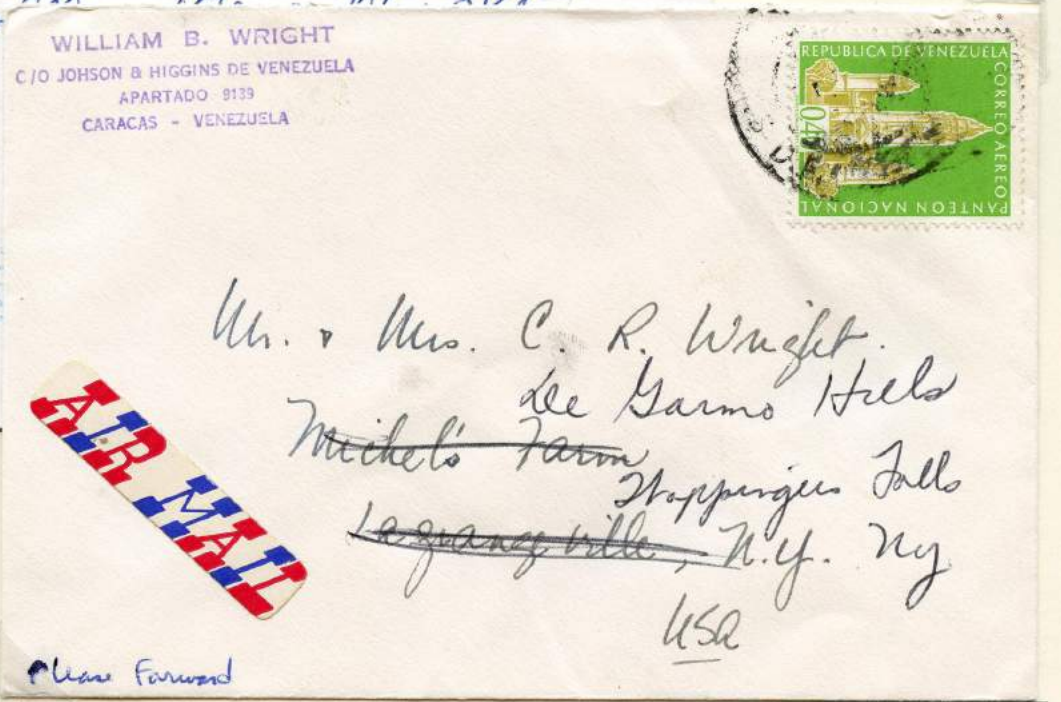 WILLIAM B. WRIGHT
C/O JOHSON & HIGGINS DE VENEZUELA
APARTADO 9139
CARACAS - VENEZUELA
REPUBLICA DE VENEZUELA
CORREO AEREO
PANTEON NACIONAL
Mr. & Mrs. C. R. Wright.
De Garmo Hills
Michel's Farm
Wappingers Falls
Lagrangeville, N.Y. Ny
USA
AIR MAIL
Please Forward